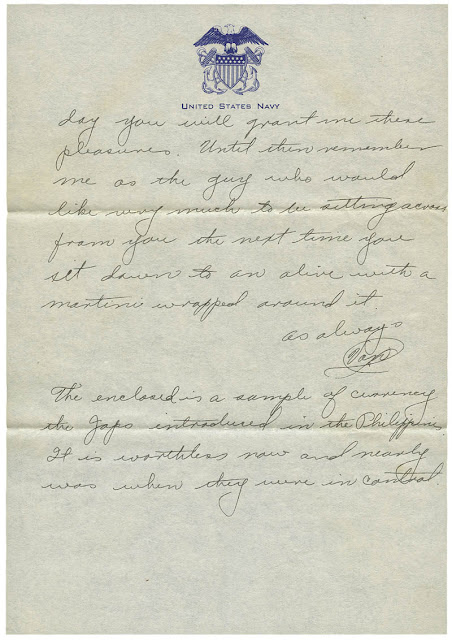 UNITED STATES NAVY
day you will grant me these
pleasures. Until then remember
me as the guy who would
like very much to be sitting across
from you the next time you
sit down to an olive with a
martini wrapped around it.
as always
The enclosed is a sample of currency
the Japs introduced in the Philippines
It is worthless now and nearly
was when they were in control.